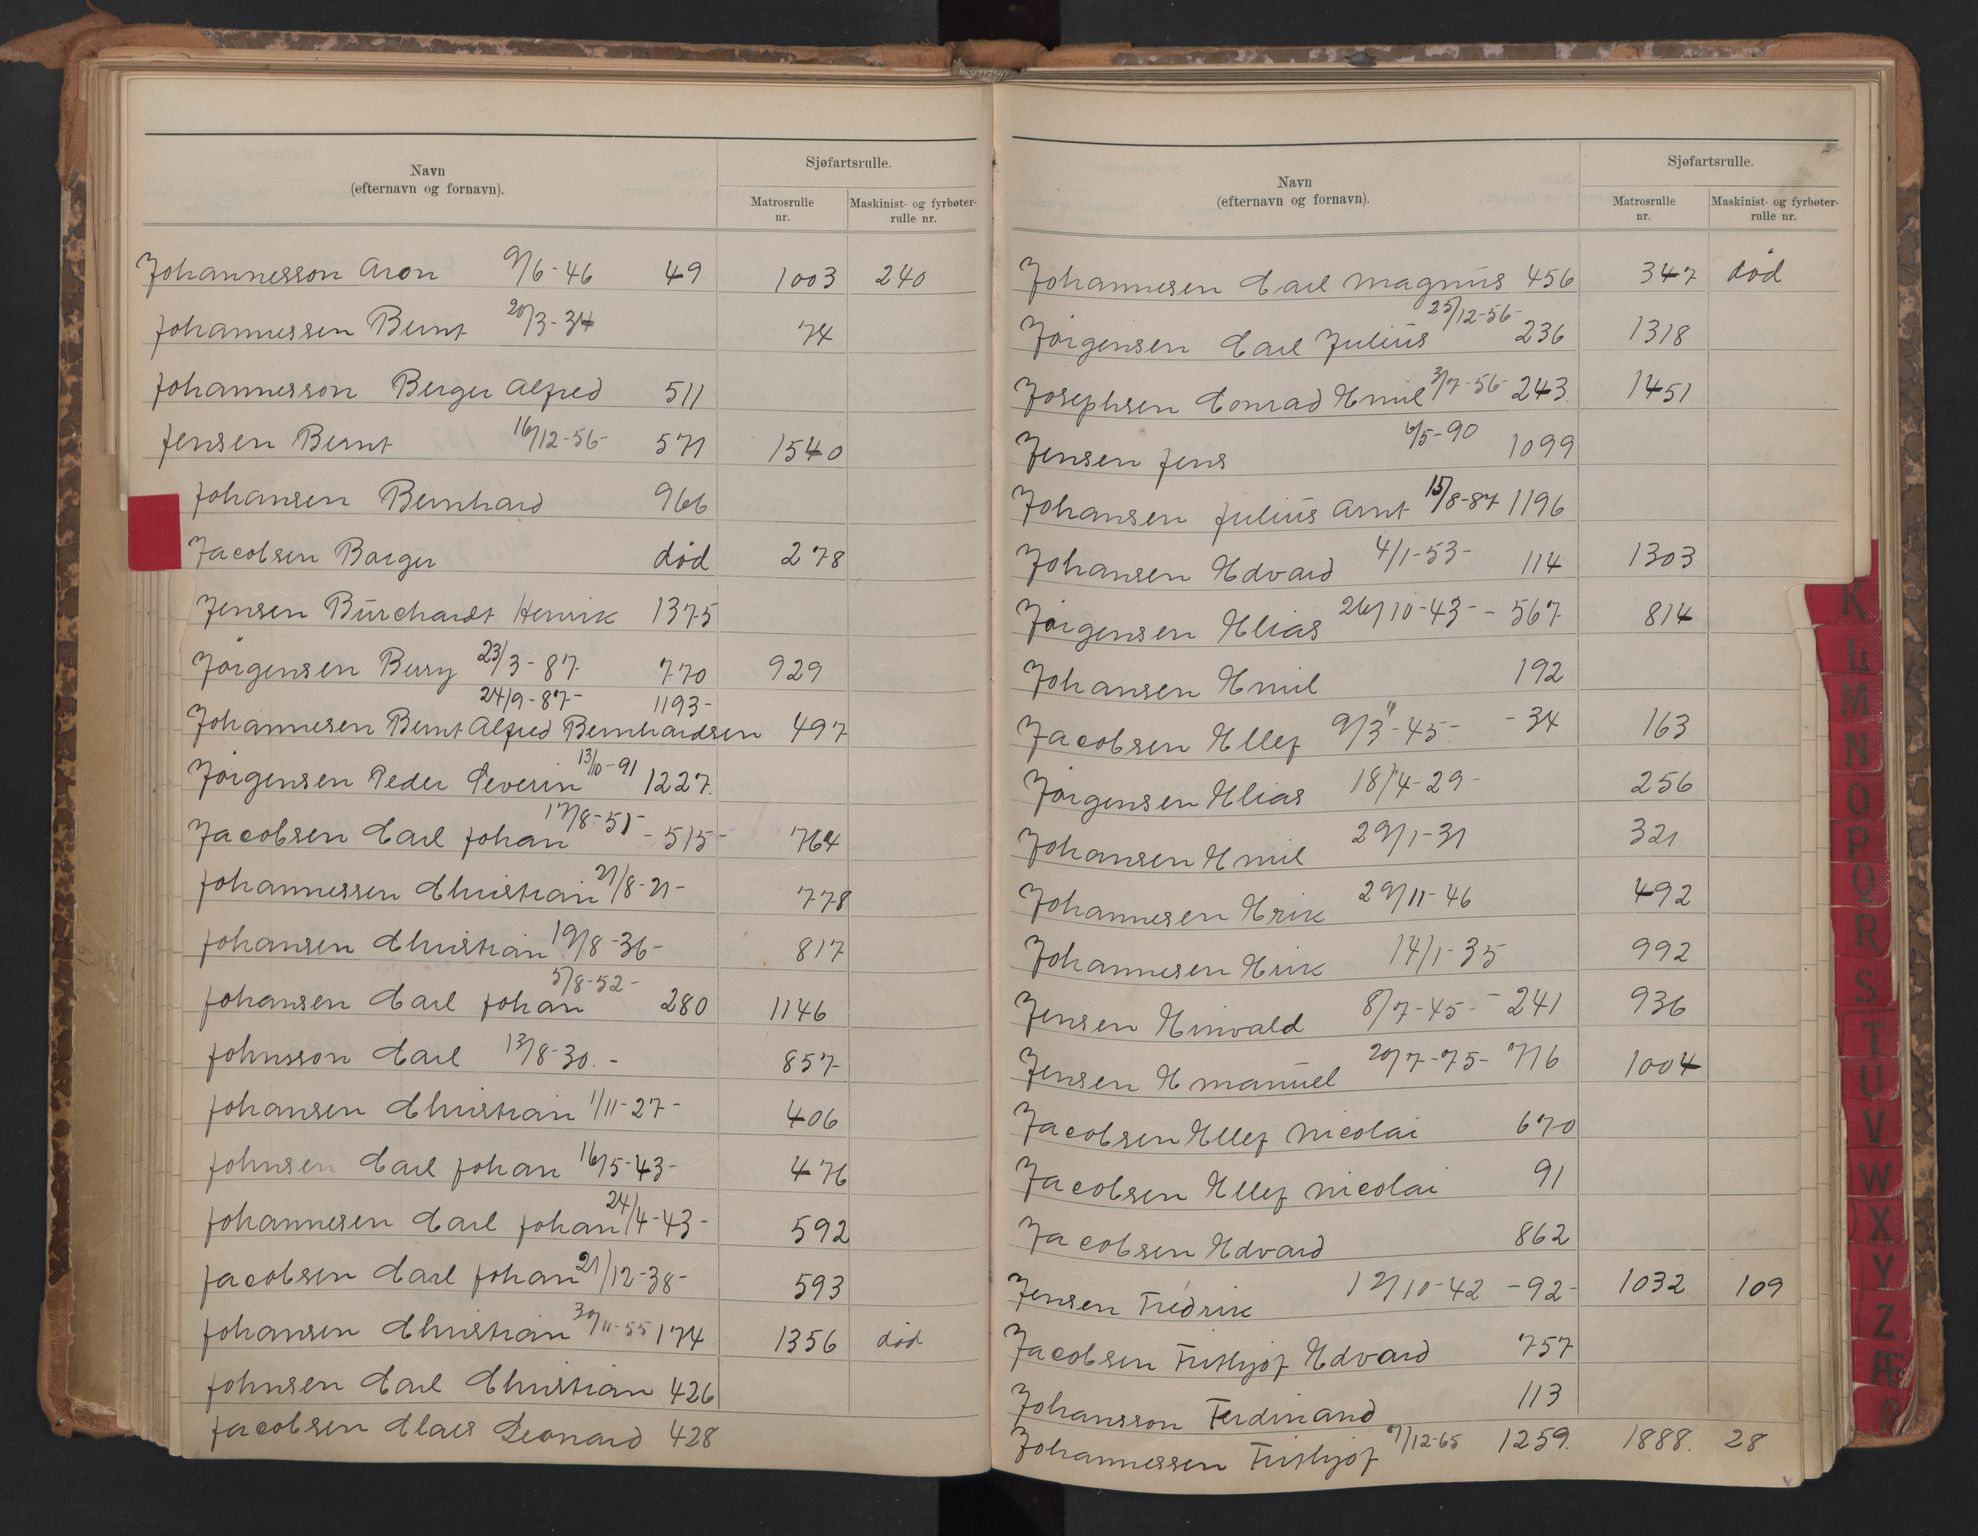 Navn
(efternavn og fornavn).
Sjøfartsrulle.
Matrosrulle nr.
Maskinist- og fyrbøter-rulle nr.
Johannesson Aron 9/6-46 49 1003 240
Johannessen Bernt 20/3-34 74
Johannesson Berger Alfred 511
Jensen Bernt 16/12-56- 571 1540
Johansen Bernhard 966
Jacobsen Barger død 278
Jensen Burchardt Henrik 1375
Jørgensen Berry 23/3-87 770 929
24/9-87- 1193-
Johannesen Bernt Alfred Bernhardsen 497
Jørgensen Peder Severin 13/10-91 1227.
Jacobsen Carl Johan 17/8-51- - 515- 764
Johannessen Christian 21/8-21- 778
Johansen Christian 19/8-36- 817
Johansen Carl Johan 5/8-52- 280 1146
Johnsson Carl 13/8-30.- 857
Johansen Christian 1/11-27- 406
Johnsen Carl Johan 16/5-43- 476
Johannesen Carl Johan 24/4-43- 592
Jacobsen Carl Johan 21/12-38- 593
Johansen Christian 30/11-55 174 1356 død
Johnsen Carl Christian 426
Jacobsen Claes Leonard 428
Navn
(efternavn og fornavn).
Sjøfartsrulle.
Matrosrulle nr.
Maskinist- og fyrbøter-rulle nr.
Johannesen Carl Magnus 456 347 død
Jørgensen Carl Julius 25/12-56- 236 1318
Josephsen Conrad Emil 3/7-56- 243 1451
Jensen Jens 6/5-90 1099
Johansen Julius Arnt 15/8-87 1196
Johansen Edvard 4/1-53- 114 1303
Jørgensen Elias 26/10-43- - 567 814
Johansen Emil 192
Jacobsen Ellef 9/3-45- - 34 163
Jørgensen Elias 18/4-29- 256
Johansen Emil 29/1-31 321
Johannesen Erik 29/11-46 492
Johannesen Erik 14/1-35 992
Jensen Einvald 8/7-45- - 241 936
Jensen Emanuel 20/7-75- 716 1004
Jacobsen Ellef Nicolai 670
Jacobsen Ellef Nicolai 91
Jacobsen Edvard 862
Jensen Fredrik 12/10-42 -92- 1032 109
Jacobsen Frithjof Edvard 757
Johansson Ferdinand 113
Johannessen Frithjof 7/12-65 1259. 1888. 28
K
L
M
N
O
P
Q
R
S
T
U
V
W
X
Y
Z
Æ